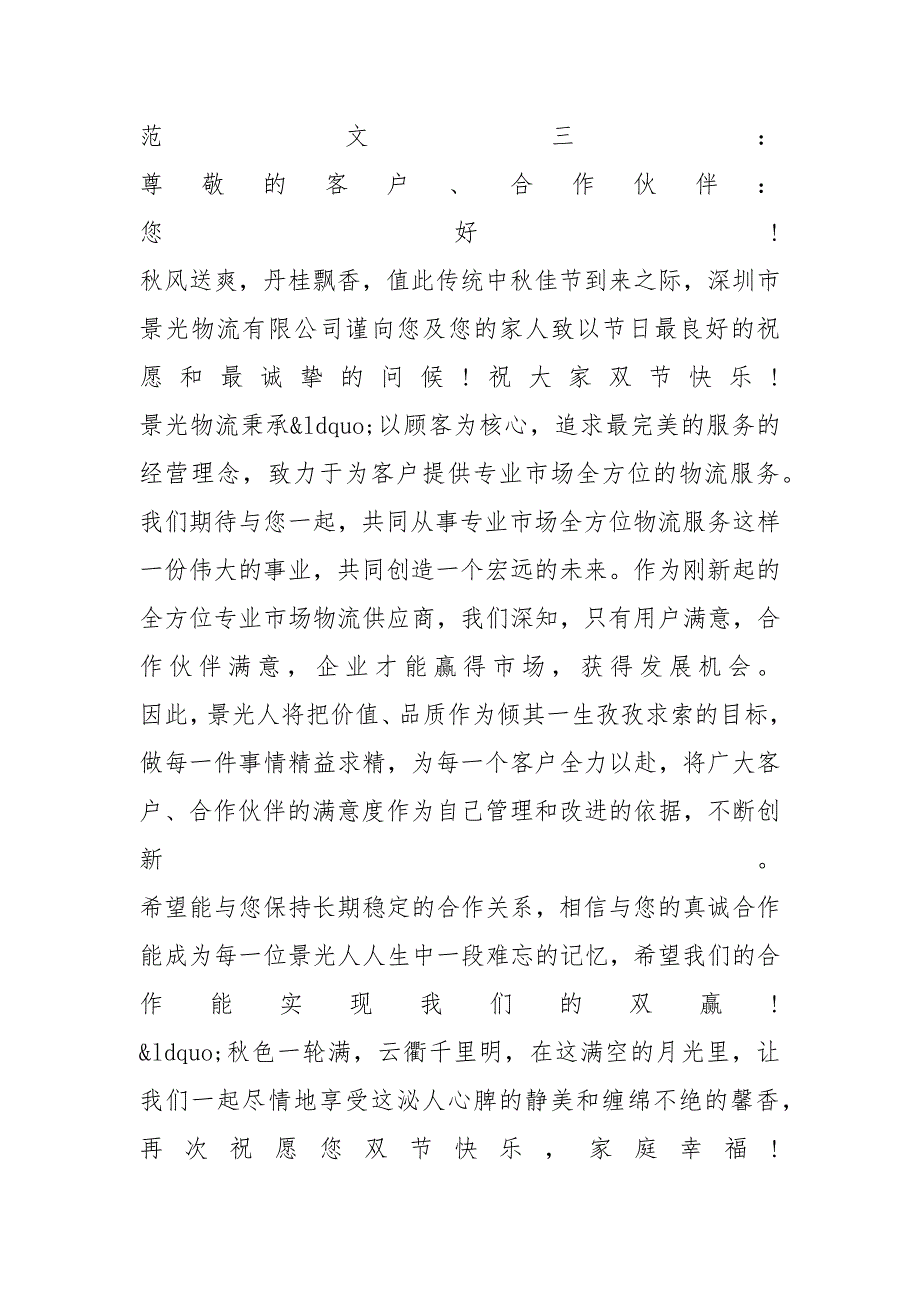 范文三：
尊敬的客户、合作伙伴：
您好！
秋风送爽，丹桂飘香，值此传统中秋佳节到来之际，深圳市
景光物流有限公司谨向您及您的家人致以节日最良好的祝
愿和最诚挚的问候！祝大家双节快乐！
景光物流秉承&ldquo;以顾客为核心，追求最完美的服务的
经营理念，致力于为客户提供专业市场全方位的物流服务。
我们期待与您一起，共同从事专业市场全方位物流服务这样
一份伟大的事业，共同创造一个宏远的未来。作为刚新起的
全方位专业市场物流供应商，我们深知，只有用户满意，合
作伙伴满意，企业才能赢得市场，获得发展机会。
因此，景光人将把价值、品质作为倾其一生孜孜求索的目标，
做每一件事情精益求精，为每一个客户全力以赴，将广大客
户、合作伙伴的满意度作为自己管理和改进的依据，不断创
新。
希望能与您保持长期稳定的合作关系，相信与您的真诚合作
能成为每一位景光人人生中一段难忘的记忆，希望我们的合
作能实现我们的双赢！
&ldquo;秋色一轮满，云衢千里明，在这满空的月光里，让
我们一起尽情地享受这泌人心脾的静美和缠绵不绝的馨香，
再次祝愿您双节快乐，家庭幸福！